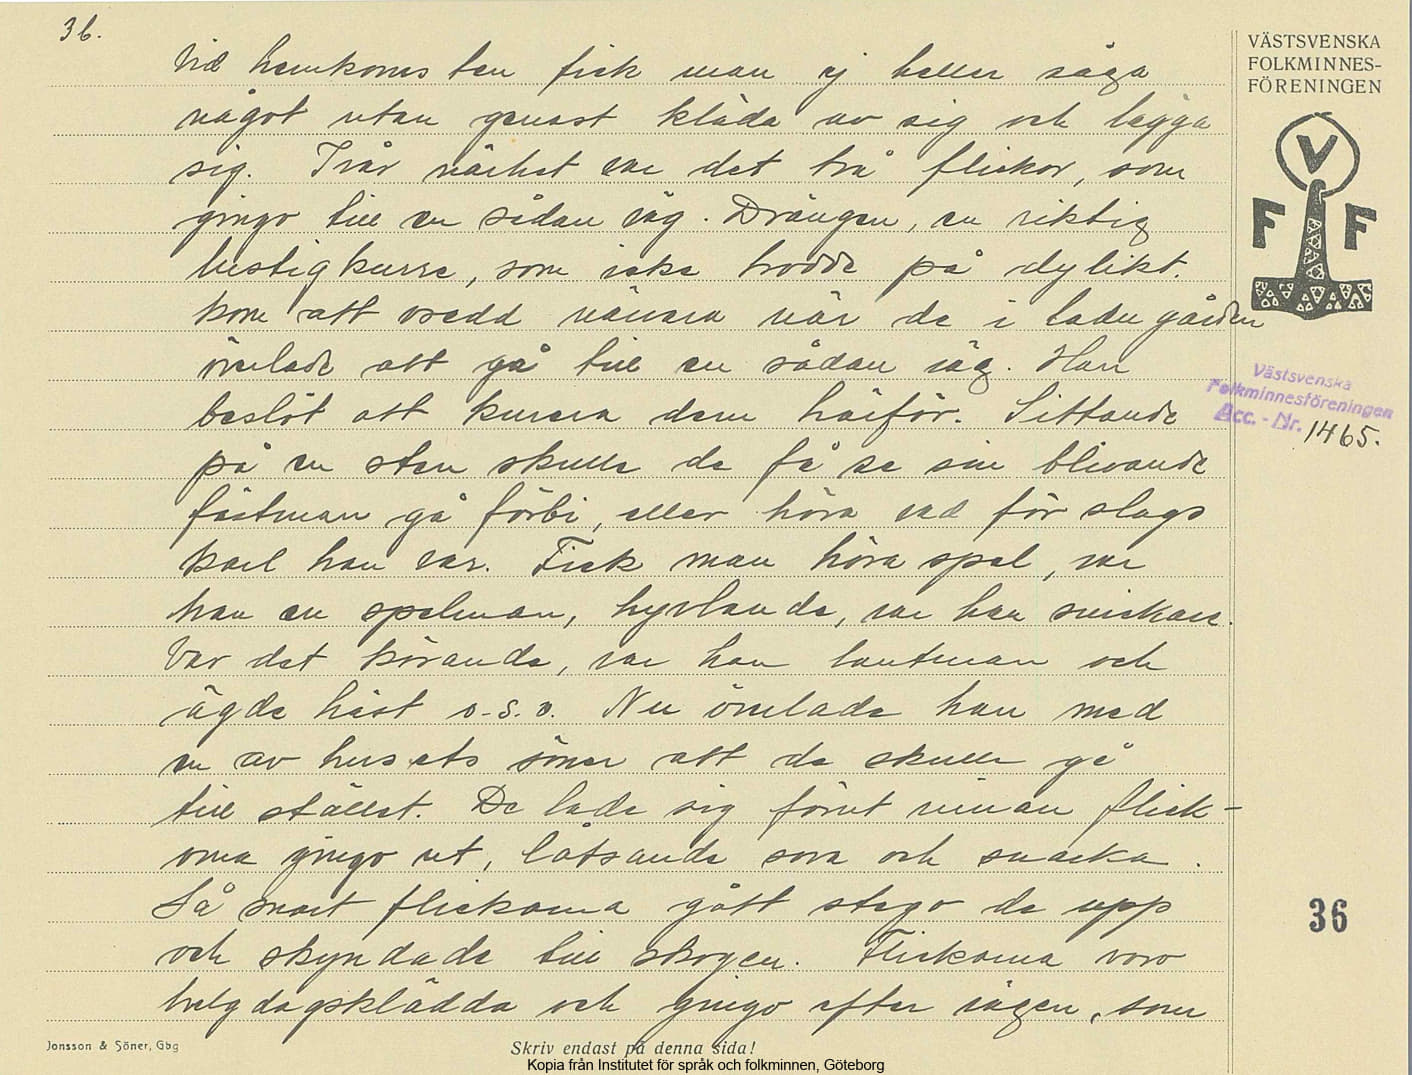 36.
VÄSTSVENSKA
FOLKMINNES-
FÖRENINGEN
V
F F
Vid hemkomsten fick man ej heller säga
något utan genast kläda av sig och lägga
sig. I vår närhet var det två flickor, som
gingo till en sådan väg. Drängen, en riktig
lustigkurre, som icke trodde på dylikt.
kom att osedd närvara när de i ladugården
önilade att gå till en sådan väg. Han
beslöt att kurera dem härför. Sittande
på en sten skulle de få se sin blivande
fästman gå förbi, eller höra vad för slags
karl han var. Fick man höra spel, var
han en spelman, hyvlande, var han snickare.
Var det körande, var han lantman och
ägde häst o.s.v. Nu önilade han med
en av husets söner att de skulle gå
till stället. De lade sig förut innan flick-
orna gingo ut, låtsande sova och snarka.
Så snart flickorna gått stego de upp
och skyndade till skogen. Flickorna voro
helgdagsklädda och gingo efter vägen, som
Västsvenska
Folkminnesföreningen
Acc. - Nr. 1465.
36
Jonsson & Söner, Gbg
Skriv endast på denna sida!
Kopia från Institutet för språk och folkminnen, Göteborg